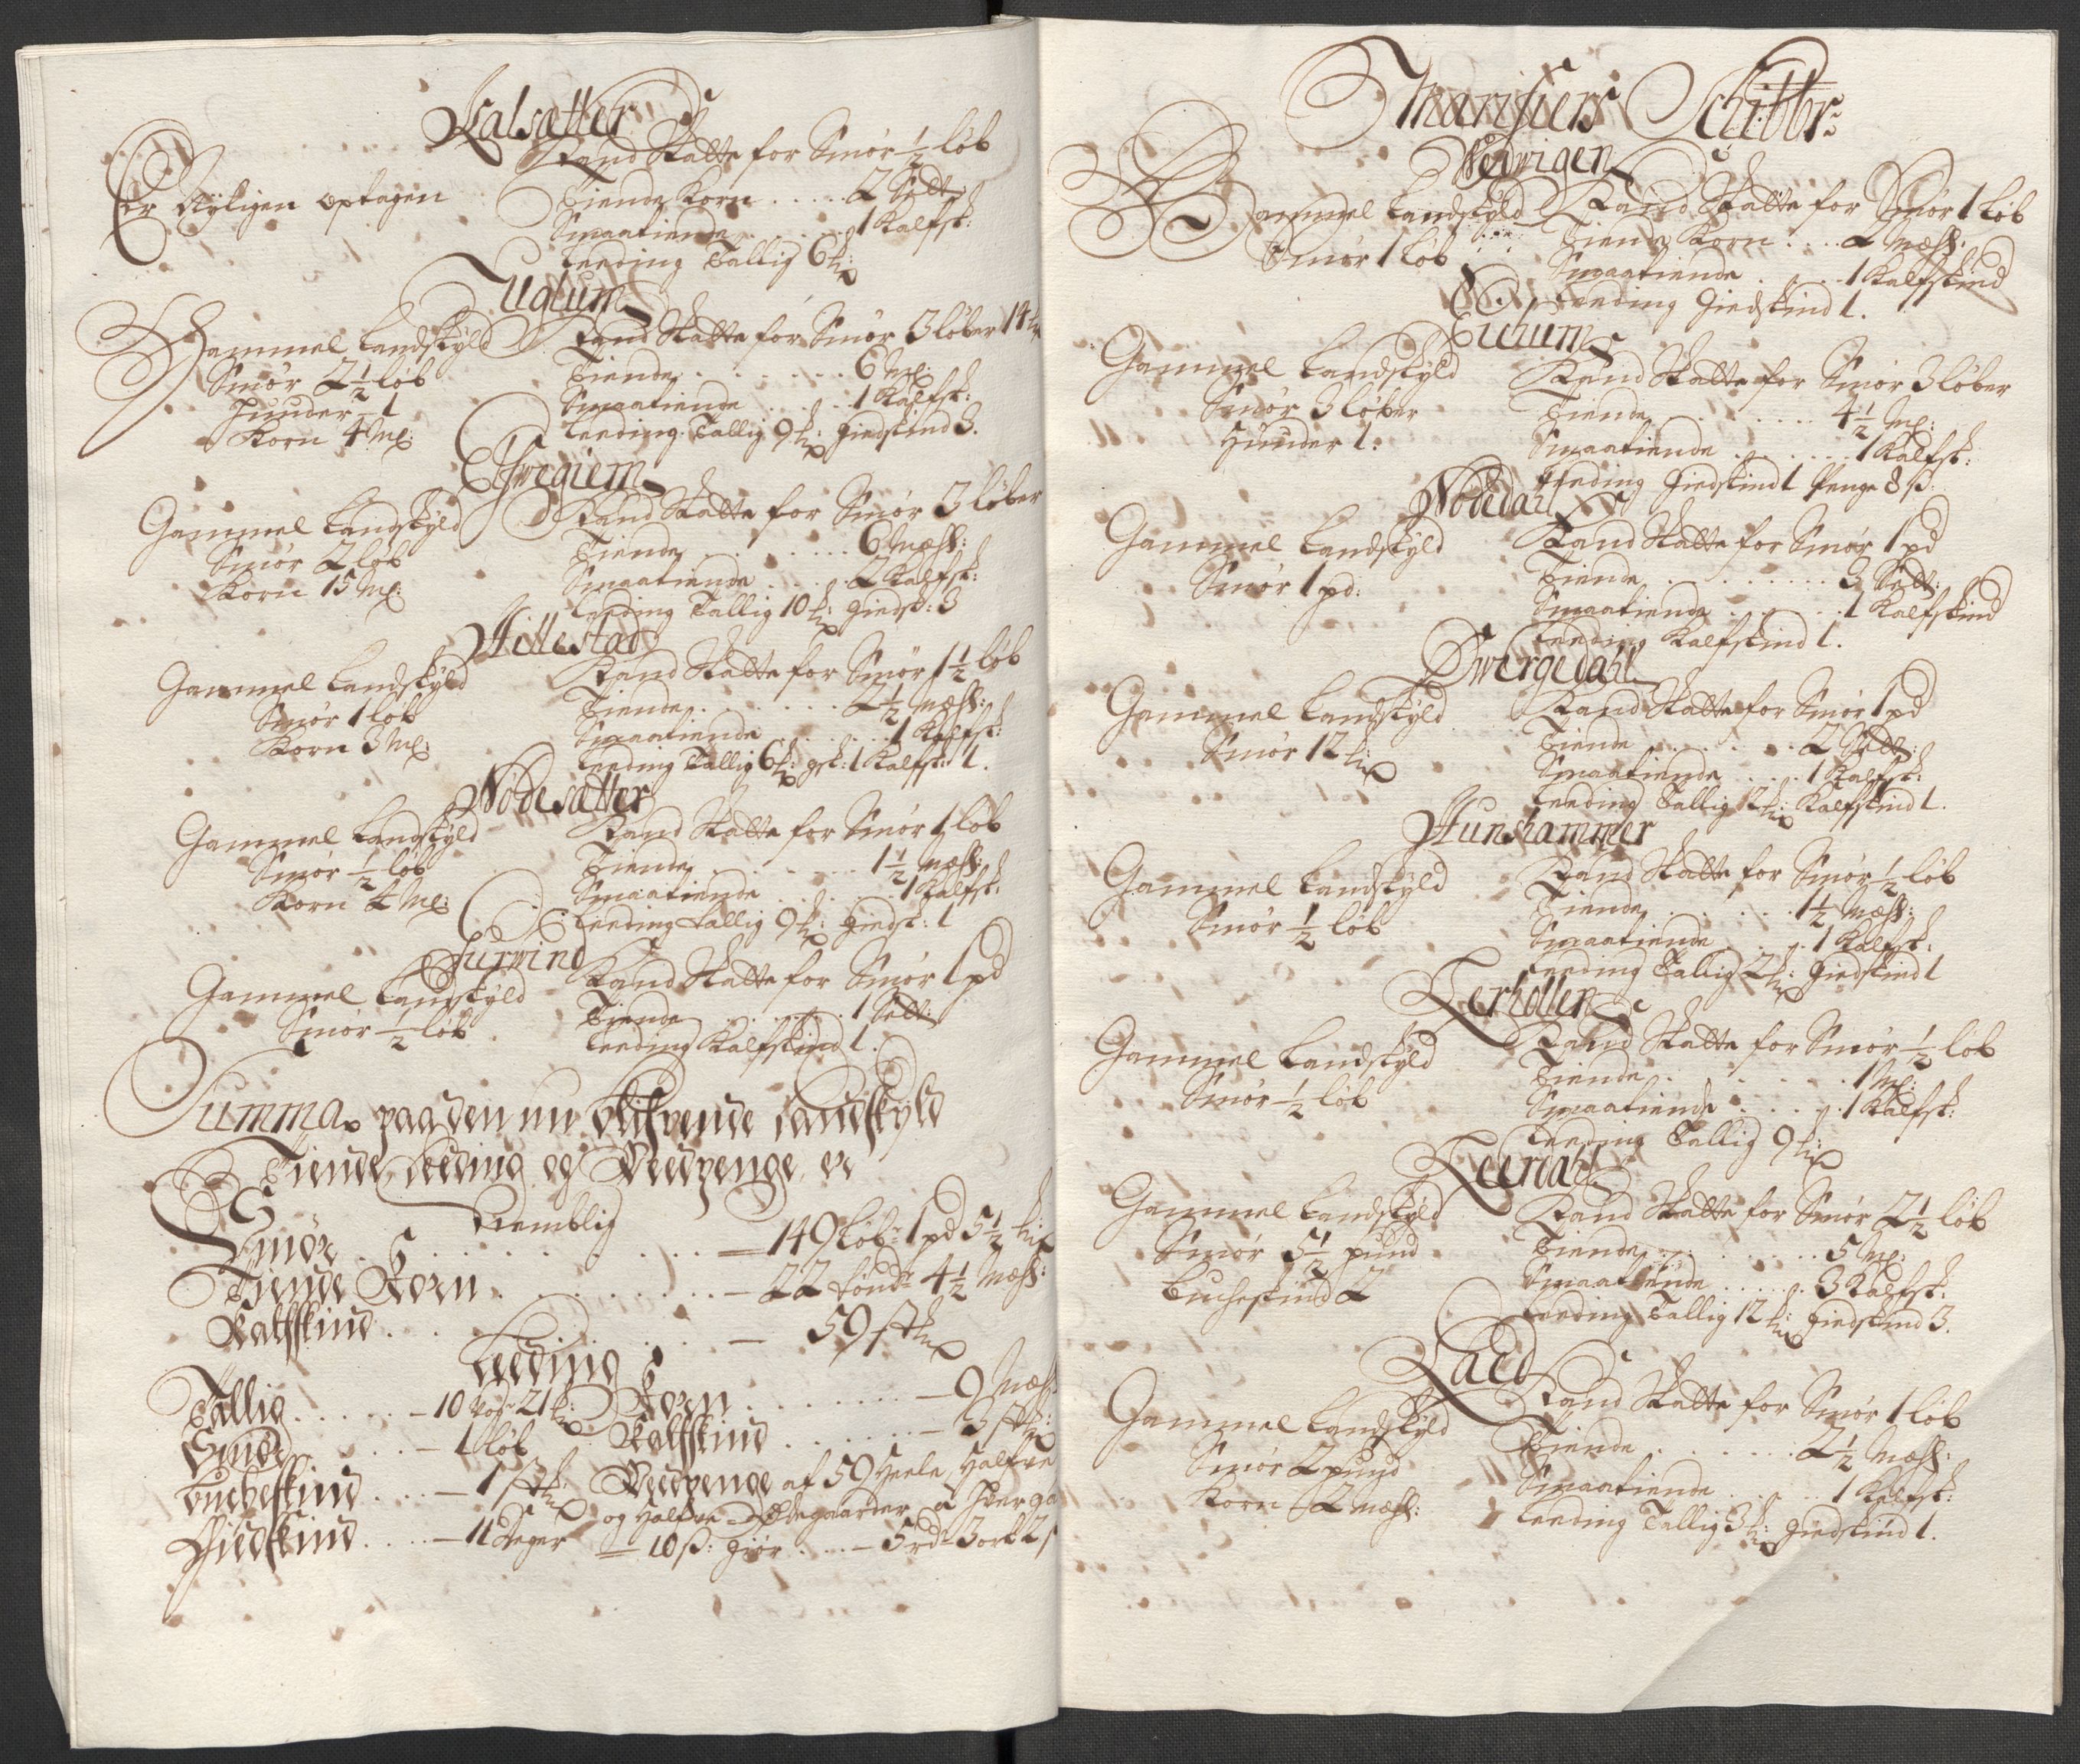 Kalsætter
Er Nyligen optagen
Kand Skatte for Smør ½ løb
Tiende Korn ..... 2 Sedt:
Smaatiende ...... 1 Kalfsk:
Leeding Tallig 6 
Uglum
Gammel Landskyld
Smør 2½ løb
Huuder - 1
Korn 4 Mel:
Kand Skatte for Smør 3 løber 14
Tiende ....... 6 Mel:
Smaatiende ..... 1 Kalfsk:
Leeding Tallig 9 giedskind 3.
Gammel Landskyld
Smør 2 løb
Korn 15 Mel:
Kand Skatte for Smør 3 løber
Tiende ....... 6 Mæhl:
Smaatiende ..... 2 Kalfsk:
Leeding Tallig 10 giedsk: 3
Hillestad
Gammel Landskyld
Smør 1 løb
Korn 3 Mel:
Kand Skatte for Smør 1½ løb
Tiende ....... 2½ Mæhl:
Smaatiende ....... 1 Kalfsk:
Leeding Tallig 6 gsk: 1 Kalfsk: 1.
Nødesætter
Gammel Landskyld
Smør ½ løb
Korn 4 Mel:
Kand Skatte for Smør 1 løb
Tiende ....... 1½ Mæhl:
Smaatiende ...... 1 Kalfsk:
Leeding Tallig 9 Giedsk: 1
Furwind
Gammel Landskyld
Smør ½ løb
Kand Skatte for Smør 1 pd
Tiende ....... 1 Sedt:
Leeding Kalfskind 1.
Summa paa den nu blifvende Landskyld
Tiende, Leeding og Wedpenge er
Nemblig
Smør ........ 149 løb: 1 pd 5½
Tiende Korn ........ 22 tønd: 4½ Mæhl:
Kalfskind ........ 59
Leeding
Tallig ...... 10 wog 21
Smør ..... 1 løb
Buckeskind .... 1
Giedskind .... 11 deger
Korn ........ 9 Mæhl
Kalfskind ....... 3
Wedpenge af 59 Heele, Halfve
og Halfve Ødegaarder a hver ga
10 ß: giør .... 5 rd 3 ort 2 ß
Marifiers Schibbr:
Nedwigen
Gammel Landskyld
Smør 1 løb
Kand Skatte for Smør 1 løb
Tiende Korn .... 2 Mæhl:
Smaatiende ..... 1 Kalfskind
Leeding Giedskind 1.
Gammel Landskyld
Smør 3 løber
Huuder 1:
Kand Skatte for Smør 3 løber
Tiende ....... 4½ Ml:
Smaatiende ...... 1 Kalfsk:
Leeding Giedskind 1 Penge 8 ß.
Nødedall
Gammel Landskyld
Smør 1 pd:
Kand Skatte for Smør 1 pd
Tiende ........ 3 Sedt:
Smaatiende ...... 1 Kalfskind
Leeding Kalfskind 1.
Dwergedahl
Gammel Landskyld
Smør 12
Kand Skatte for Smør 1 pd
Tiende ....... 2 Sedt:
Smaatiende .... 1 Kalfsk:
Leeding Tallig 12 Kalfskind 1.
Hunshammer
Gammel Landskyld
Smør ½ løb
Kand Skatte for Smør ½ løb
Tiende ...... 1½ Mæhl:
Smaatiende .... 1 Kalfsk:
Leeding Tallig 2 Giedskind 1
Lerhollen
Gammel Landskyld
Smør ½ løb
Kand Skatte for Smør ½ løb
Tiende ....... 1 Ml:
Smaatiende ..... 1 Kalfsk:
Leeding Tallig 9
Leerdahl
Gammel Landskyld
Smør 5½ pund
Buckeskind 2
Kand Skatte for Smør 2½ løb
Tiende ....... 5 Ml:
Smaatiende ..... 3 Kalfsk:
Leeding Tallig 12 Giedskind 3.
Laed
Gammel Landskyld
Smør 2 pund
Korn 2 Mæhl:
Kand Skatte for Smør 1 løb
Tiende ...... 2½ Mæhl:
Smaatiende ..... 1 Kalfsk:
Leeding Tallig 3 Giedskind 1.